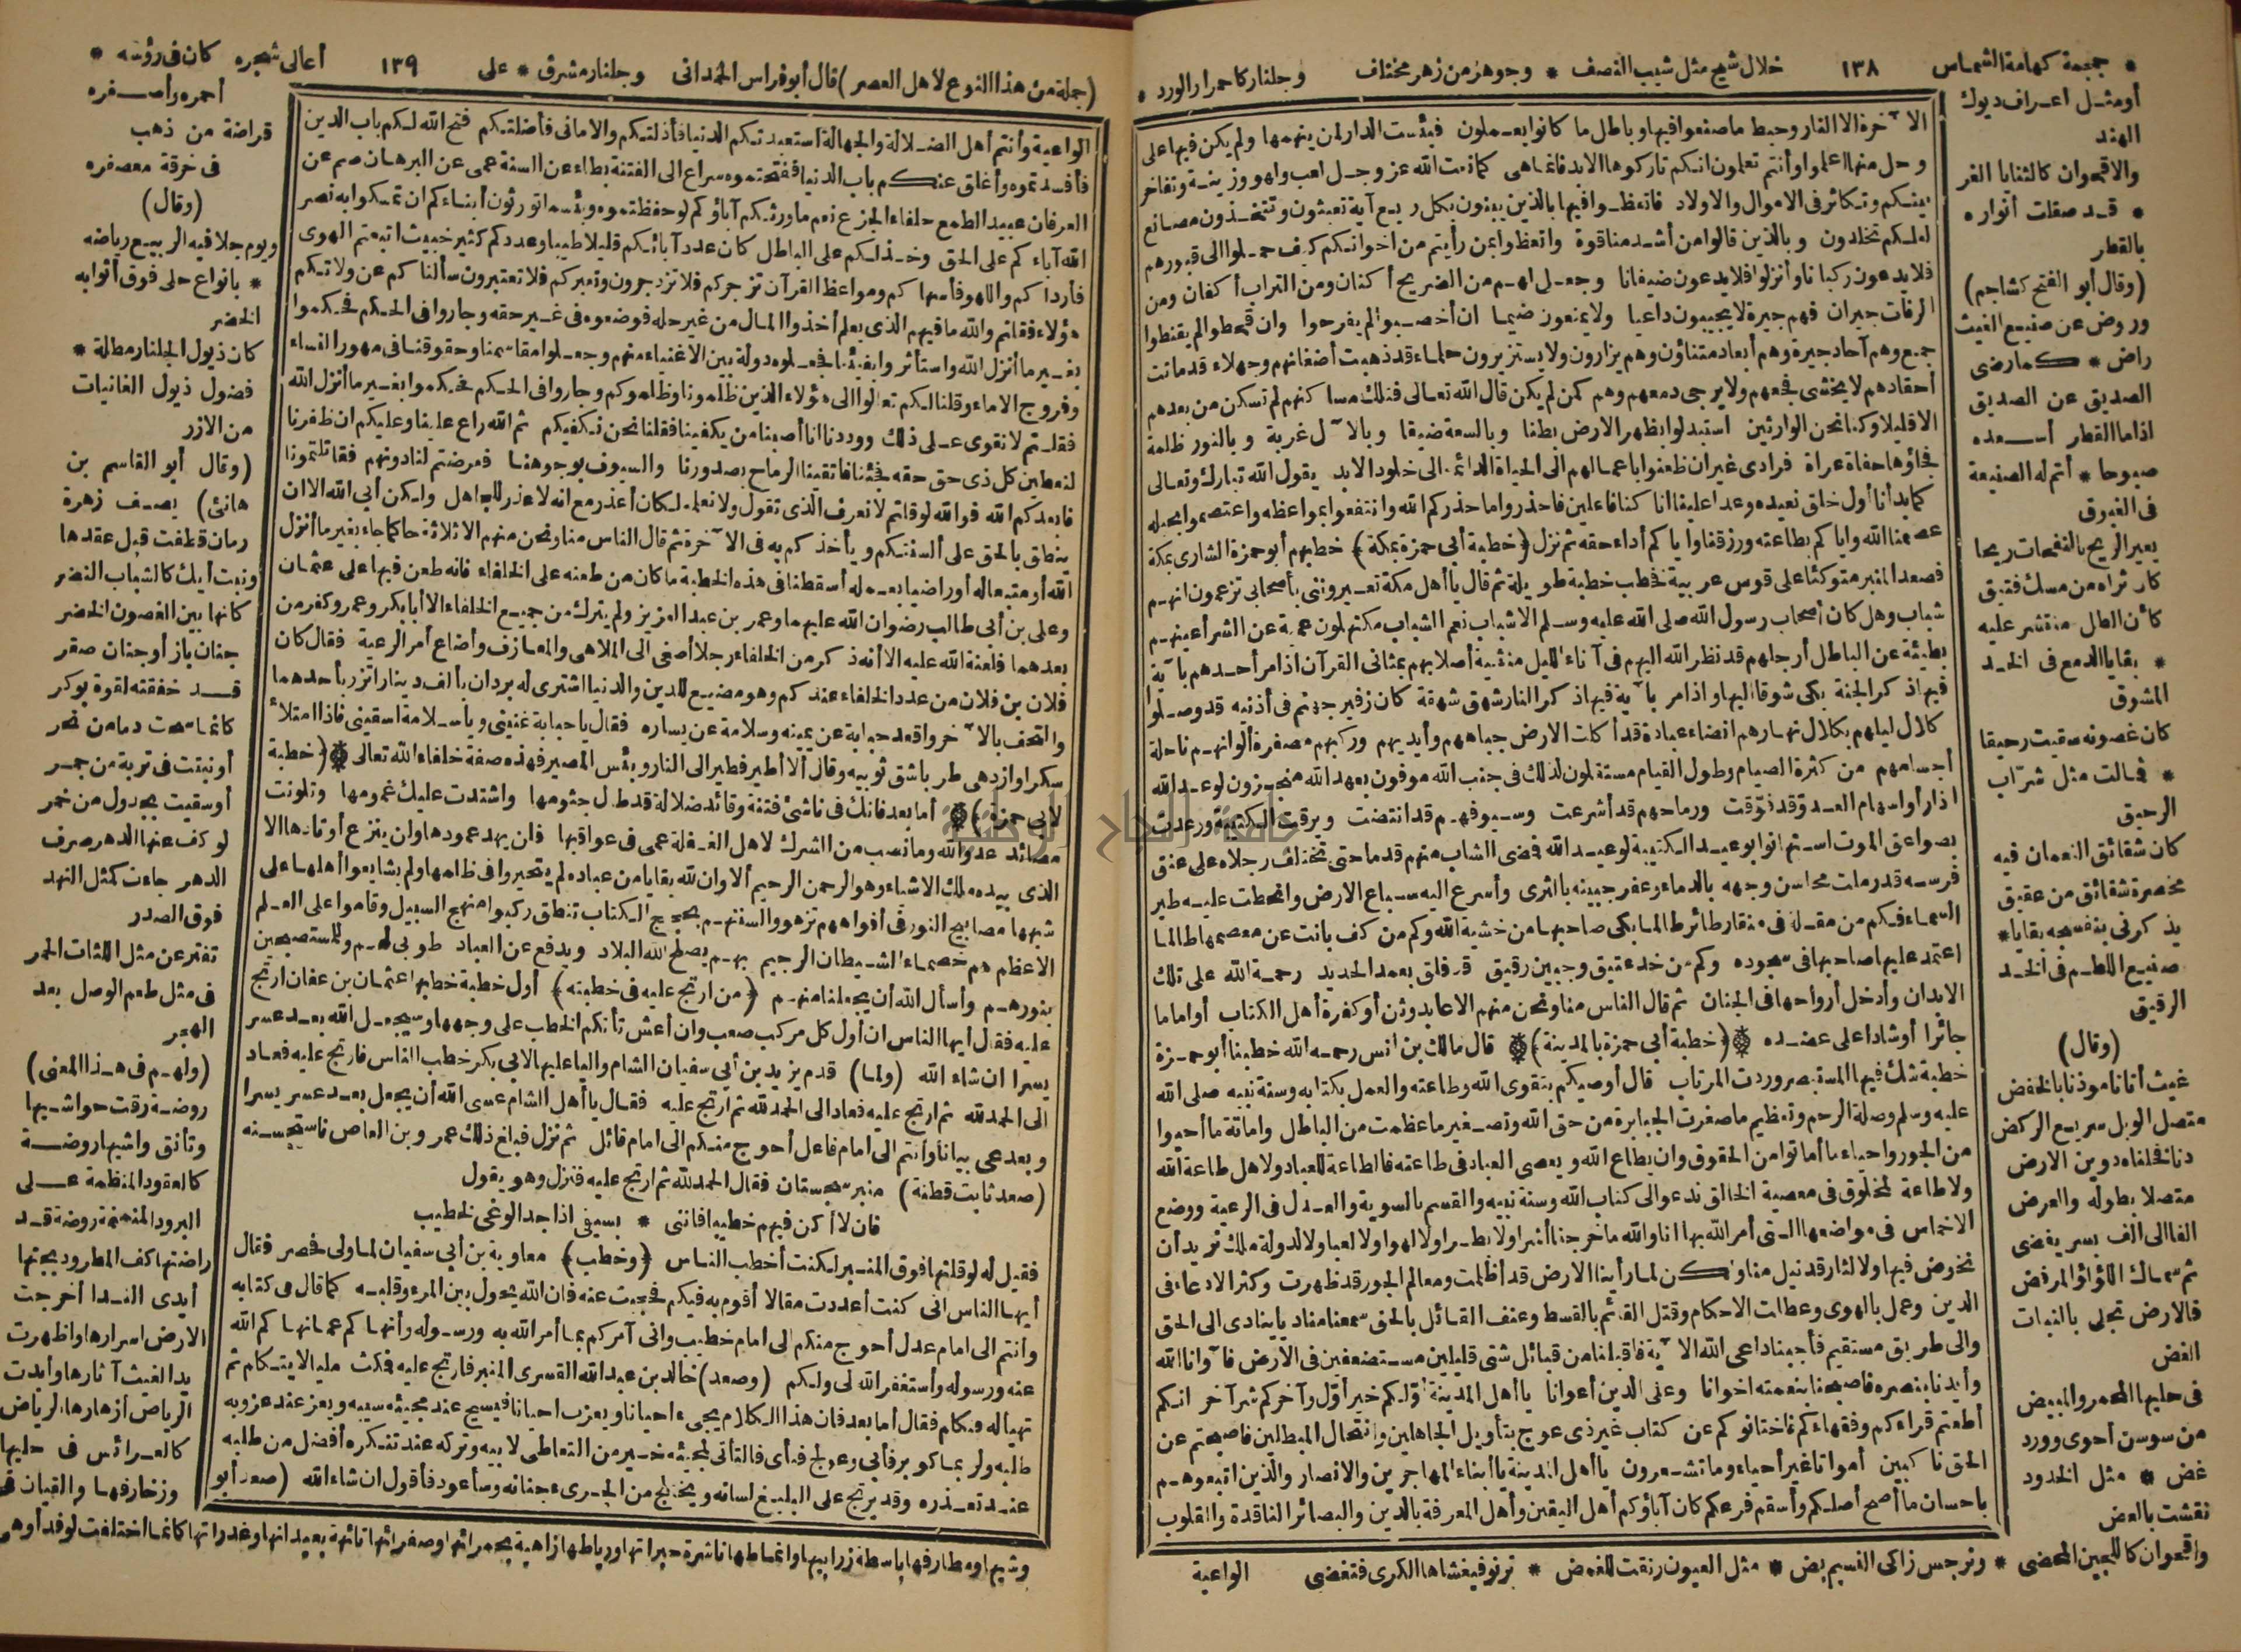 * جمجمة كهامة الشماس
١٣٨
خلال شيح مثل شيب النصف * وجوهر من زهر مختلف
وجلنار كاحمرار الورد *
أو مثل أعراف ديوك
الهند
والاقحوان كالثنايا الغر
* قد صقلت أنواره
بالقطر
(وقال أبو الفتح كشاجم)
وروض عن صنيع الغيث
راض * كما رضى
الصديق عن الصديق
اذا ما القطر أسعده
صبوحا * أتم له الصنيعة
فى الغبوق
يعير الريح بالنفحات ريحا
كأن ثراه من مسك فتيق
كأن الطل منتشر عليه
* بقايا الدمع فى الخد
المشوق
كأن غصونه سقيت رحيقا
* فمالت مثل شرّاب
الرحيق
كأن شقائق النعمان فيه
محضرة شقائق من عقيق
يذكرنى بنفسجه بقايا *
صنيع اللطم فى الخد
الرقيق
(وقال)
غيث أتانا مؤذنا بالخفض
متصل الوبل سريع الركض
دنا فخلناه دوين الارض
متصلا بطوله والعرض
الفا الى الف بسر يفضى
ثم سماك اللؤلؤ المرفض
فالارض تجلى بالنبات
الغض
فى حليها المحمر والمبيض
من سوسن أحوى وورد
غض * مثل الخدود
نقشت بالعض
واقحوان كاللجين المحض * ونرجس زاكى النسيم بض * مثل العيون رنقت للغمض * ترنو فيغشاها الكرى فتغضى
الاۤخرة الا النار وحبط ما صنعوا فيها وباطل ما كانوا يعملون فبئست الدار لمن يتهمها ولم يكن فيها على
وجل منها اعلموا وأنتم تعلمون انكم تاركوها الابد فانما هى كما نعت الله عز وجل لعب ولهو وزينة وتفاخر
بينكم وتكاثر فى الاموال والاولاد فاتعظوا فيها بالذين يبنون بكل ريع آية تعبثون وتتخذون مصانع
لعلكم تخلدون وبالذين قالوا من أشد منا قوة واتعظوا بمن رأيتم من اخوانكم كيف حملوا الى قبورهم
فلا يدعون ركبانا وأنزلوا فلا يدعون ضيفانا وجعل لهم من الضريح أكنان ومن التراب أكفان ومن
الرفات جيران فهم جيرة لا يجيبون داعيا ولا يمنعون ضيما ان أخصبوا لم يفرحوا وان قحطوا لم يقنطوا
جميع وهم آحاد جيرة وهم أبعاد متناؤن وهم يزارون ولا يستزيرون حلماء قد ذهبت أضغانهم وجهلاء قد ماتت
أحقادهم لا يخشى فجعهم ولا يرجى دمعهم وهم كمن لم يكن قال الله تعالى فتلك مساكنهم لم تسكن من بعدهم
الا قليلا وكنا نحن الوارثين استبدلوا بظهر الارض بطنا وبالسعة ضيقا وبالاۤل غربة وبالنور ظلمة
فجاؤها حفاة عراة فرادى غير ان ظعنوا باعمالهم الى الحياة الدائمة الى خلود الابد يقول الله تبارك وتعالى
كما بدأنا أول خلق نعيده وعدا علينا انا كنا فاعلين فاحذروا ما حذركم الله وانتفعوا بمواعظه واعتصموا بحبله
عصمنا الله واياكم بطاعته ورزقنا واياكم أداء حقه ثم نزل (خطبة أبى حمزة بمكة) خطبهم أبو حمزة الشارى بمكة
فصعد المنبر متوكئا على قوس عربية فخطب خطبة طويلة ثم قال يا أهل مكة تعيروننى بأصحابى تزعمون انهم
شباب وهل كان أصحاب رسول الله صلى الله عليه وسلم الا شبابا نعم الشباب مكتهلون عمية عن الشر أعينهم
بطيئة عن الباطل أرجلهم قد نظر الله اليهم فى آناء الليل منثنية أصلابهم بمثانى القرآن اذا مر أحدهم باۤية
فيها ذكر الجنة بكى شوقا اليها واذا مر باۤية فيها ذكر النار شهق شهقة كان زفير جهنم فى أذنيه قد وصلوا
كلال ليلهم بكلال نهارهم انضاء عبادة قد أكلت الارض جباههم وأيديهم وركبهم مصفرة ألوانهم ناحلة
أجسامهم من كثرة الصيام وطول القيام مستقلون لذلك فى جنب الله موفون بعهد الله منجزون لوعد الله
اذا رأوا سهام العدوّ قد فوّقت ورماحهم قد أشرعت وسيوفهم قد انتضت وبرقت الكتيبة ورعدت
بصواعق الموت استهانوا بوعيد الكتيبة لوعيد الله فمضى الشاب منهم قدما حتى تختلف رجلاه على عنق
فرسه قد رملت محاسن وجهه بالدماء وعفر جبينه بالثرى وأسرع اليه سباع الارض وانحطت عليه طير
السماء فكم من مقلة فى منقار طائر طالما بكى صاحبها من خشية الله وكم من كف بانت عن معصمها طالما
اعتمد عليها صاحبها فى سجوده وكم من خد عتيق وجبين رقيق قد فلق بعمد الحديد رحمة الله على تلك
الابدان وأدخل أرواحها فى الجنان ثم قال الناس منا ونحن منهم الا عابد وثن أو كفرة أهل الكتاب أو اماما
جائرا أو شادا على عضده (خطبة أبى حمزة بالمدينة) قال مالك بن انس رحمه الله خطبنا أبو حمزة
خطبة شك فيها المستبصر وردت المرتاب قال أوصيكم بتقوى الله وطاعته والعمل بكتابه وسنة نبيه صلى الله
عليه وسلم وصلة الرحم وتعظيم ما صغرت الجبابرة من حق الله وتصغير ما عظمت من الباطل واماتة ما أحيوا
من الجور واحياء ما أماتوا من الحقوق وان يطاع الله ويعصى العباد فى طاعته فالطاعة لله ولاهل طاعة الله
ولا طاعة لمخلوق فى معصية الخالق ندعو الى كتاب الله وسنة نبيه والقسم بالسوية والعدل فى الرعية ووضع
الاخماس فى مواضعها التى أمر الله بها انا والله ما خرجنا أشرا ولا بطرا ولا لهوا ولا لعبا ولا لدولة ملك نريد أن
نخوض فيها ولا لثار قد نيل منا ولكن لما رأينا الارض قد أظلمت ومعالم الجور قد ظهرت وكثر الادعاء فى
الدين وعمل بالهوى وعطلت الاحكام وقتل القائم بالقسط وعنف القائل بالحق سمعنا مناديا ينادى الى الحق
والى طريق مستقيم فأجبنا داعى الله الاۤية فاقبلنا من قبائل شتى قليلين مستضعفين فى الارض فاۤوانا الله
وأيدنا بنصره فاصبحنا بنعمته اخوانا وعلى الدين أعوانا يا أهل المدينة أوّلكم خير أوّل وآخركم شر آخر انكم
أطعتم قراءكم وفقهاءكم فاختانوكم عن كتاب غير ذى عوج بتأويل الجاهلين وانتحال المبطلين فاصبحتم عن
الحق ناكبين أمواتا غير أحياء وما تشعرون يا أهل المدينة يا أبناء المهاجرين والانصار والذين اتبعوهم
باحسان ما أصح أصلكم وأسقم فرعكم كان آباؤكم أهل اليقين وأهل المعرفة بالدين والبصائر الناقدة والقلوب
الواعية
(جملة من هذا النوع لاهل العصر) قال أبو فراس الحمدانى
وجلنار مشرق * على
١٣٩
أعالى شجره كان فى رؤسه *
أحمره وأصفره
قراضة من ذهب
فى خرقة معصفره
(وقال)
ويوم جلا فيه الربيع رياضه
* بانواع حلى فوق أثوابه
الخضر
كان ذيول الجلنار مطلة *
فضول ذيول الغانيات
من الازر
(وقال أبو القاسم بن
هانئ) يصف زهرة
رمان قطفت قبل عقدها
وبنت أيك كالشباب النضر
كانها بين الغصون الخضر
جنان باز أو جنان صقر
قد خفقته لقوة بوكر
كانما سحت دما من نحر
أو نبتت فى تربة من جمر
أو سقيت بجدول من خمر
لو كف عنها الدهر صرف
الدهر جاءت كمثل النهد
فوق الصدر
تفتر عن مثل اللثات الحمر
فى مثل طعم الوصل بعد
الهجر
(ولهم فى هذا المعنى)
روضة رقت حواشيها
وتأنق واشيها روضة
كالعقود المنظمة على
البرود المنمنمة روضة قد
راضتها كف المطر ودبجتها
أيدى الندا أخرجت
الارض اسرارها واظهرت
يد الغيث آثارها وأبدت
الرياض أزهارها الرياض
كالعرائس فى حليها
وزخارفها والقيان فى
وشيها ومطارفها باسطة زرابيها وانماطها ناشرة حبراتها ورياطها زاهية بحمرائها وصفرائها تائهة بعيدانها وغدرانها كانما احتلفت لوفد أو هى
الواعية وأنتم أهل الضلالة والجهالة استعبدتكم الدنيا فأذلتكم والامانى فأضلتكم فتح الله لكم باب الدين
فأفسدتموه وأغلق عنكم باب الدنيا ففتحتموه سراع الى الفتنة بطاء عن السنة عمى عن البرهان صم عن
العرفان عبيد الطمع حلفاء الجزع نعم ما ورثكم آباؤكم لو حفظتموه وبئسما تورثون أبناءكم ان تمسكوا به نصر
الله آباءكم على الحق وخذلكم على الباطل كان عدد آبائكم قليلا طيبا وعددكم كثير خبيث اتبعتم الهوى
فأرداكم واللهو فأسهاكم ومواعظ القرآن تزجركم فلا تزدجرون وتعبركم فلا تعتبرون سألناكم عن ولاتكم
هؤلاء فقلتم والله ما فيهم الذى يعلم أخذوا المال من غير حله فوضعوه فى غير حقه وجاروا فى الحكم فحكموا
بغير ما أنزل الله واستأثروا بفيئنا فجعلوه دولة بين الاغنياء منهم وجعلوا مقاسمنا وحقوقنا فى مهور النساء
وفروج الاماء وقلنا لكم تعالوا الى هؤلاء الذين ظلمونا وظلموكم وجاروا فى الحكم فحكموا بغير ما أنزل الله
فقلتم لا نقوى على ذلك ووددنا انا أصبنا من يكفينا فقلنا نحن نكفيكم ثم الله راع علينا وعليكم ان ظفرنا
لنعطين كل ذى حق حقه فجئنا فاتقينا الرماح بصدورنا والسيوف بوجوهنا فعرضتم لنا دونهم فقاتلتمونا
فابعدكم الله فوالله لو قلتم لا نعرف الذى تقول ولا نعلمه لكان أعذر مع انه لا عذر للجاهل ولكن أبى الله الا ان
ينطق بالحق على ألسنتكم ويأخذكم به فى الاۤخرة ثم قال الناس منا ونحن منهم الا ثلاثة حاكما جاء بغير ما أنزل
الله أو متبعا له أو راضيا بعمله أسقطنا فى هذه الخطبة ما كان من طعنه على الخلفاء فانه طعن فيها على عثمان
وعلى بن أبى طالب رضوان الله عليهما وعمر بن عبد العزيز ولم يترك من جميع الخلفاء الا أبا بكر وعمر وكفر من
بعدهما فلعنة الله عليه الا أنه ذكر من الخلفاء رجلا أصغى الى الملاهى والمعازف وأضاع أمر الرعية فقال كان
فلان بن فلان من عدد الخلفاء عندكم وهو مضيع للدين والدنيا اشترى له بردان بألف دينار اتزر بأحدهما
والتحف بالاۤخر واقعد حبابة عن يمينه وسلامة عن يساره فقال يا حبابة غنينى ويا سلامة اسقينى فاذا امتلأ
سكرا وازدهى طربا شق ثوبيه وقال ألا أطير فطير الى النار وبئس المصير فهذه صفة خلفاء الله تعالى (خطبة
لابى حمزة) أما بعد فانك فى ناشئ فتنة وقائد ضلالة قد طال جثومها واشتدت عليك غمومها وتلونت
مصائد عدو الله وما نصب من الشرك لاهل الغفلة عمى فى عواقبها فلن يهد عمودها ولن ينزع أوتادها الا
الذى بيده ملك الاشياء وهو الرحمن الرحيم ألا وان لله بقايا من عباده لم يتحيروا فى ظلمها ولم يشايعوا أهلها على
شبهها مصابيح النور فى أفواههم تزهو وألسنتهم بحجج الكتاب تنطق ركبوا منهج السبيل وقاموا على العلم
الاعظم هم خصماء الشيطان الرجيم بهم يصلح الله البلاد ويدفع عن العباد طوبى لهم وللمستصبحين
بنورهم وأسأل الله أن يجعلنا منهم (من ارتج عليه فى خطبته) أول خطبة خطبها عثمان بن عفان ارتج
عليه فقال أيها الناس ان أول كل مركب صعب وان أعش تأتكم الخطب على وجهها وسيجعل الله بعد عسر
يسرا ان شاء الله (ولما) قدم يزيد بن أبى سفيان الشام واليا عليها لابى بكر خطب الناس فارتج عليه فعاد
الى الحمد لله ثم ارتج عليه فعاد الى الحمد لله ثم ارتج عليه فقال يا أهل الشام عسى الله أن يجعل بعد عسر يسرا
وبعد عى بيانا وأنتم الى امام فاعل أحوج منكم الى امام قائل ثم نزل فبلغ ذلك عمرو بن العاص فاستحسنه
(صعد ثابت قطنة) منبر سجستان فقال الحمد لله ثم ارتج عليه فنزل وهو يقول
فان لا أكن فيهم خطيبا فاننى * بسيفى اذا جد الوغى لخطيب
فقيل له لو قلتها فوق المنبر لكنت أخطب الناس (وخطب) معاوية بن أبى سفيان لما ولى فحصر فقال
أيها الناس انى كنت أعددت مقالا أقوم به فيكم فحجبت عنه فان الله يحول بين المرء وقلبه كما قال فى كتابه
وأنتم الى امام عدل أحوج منكم الى امام خطيب وانى آمركم بما أمر الله به ورسوله وأنهاكم عما نهاكم الله
عنه ورسوله وأستغفر الله لى ولكم (وصعد) خالد بن عبد الله القسرى المنبر فارتج عليه فمكث مليا لا يتكلم ثم
تهيأ له فتكلم فقال أما بعد فان هذا الكلام يجىء احيانا ويعزب احيانا فيسيح عند مجيئه سيبه ويعز عند عزوبه
طلبه ولربما كوبر فأبى وعولج فنأى فالتأنى لمجيئه خير من التعاطى لابيه وتركه عند تنكره أفضل من طلبه
عند تعذره وقد يرتج على البليغ لسانه ويختلج من الجرىء جنانه وسأعود فأقول ان شاء الله (صعد أبو